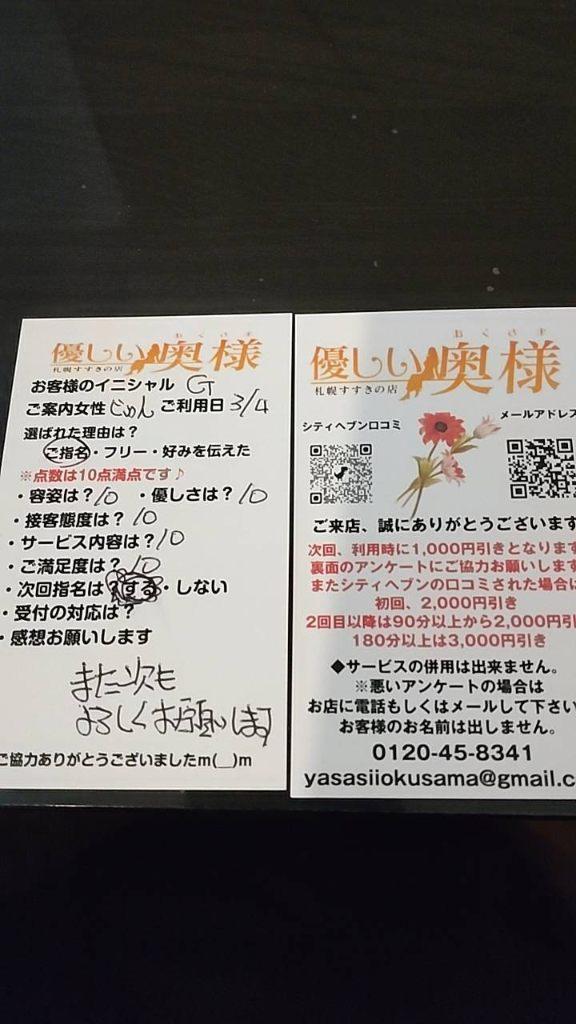 おくさま
優しい奥様
札幌すすきの店
お客様のイニシャル G
ご案内女性 じゅん ご利用日 3/4
選ばれた理由は?
ご指名・フリー・好みを伝えた
※点数は10点満点です♪
・容姿は? 10 ・優しさは? 10
・接客態度は? 10
・サービス内容は? 10
・ご満足度は? 10
・次回指名は?する・しない
・受付の対応は?
・感想お願いします
また次も
よろしくお願いします
ご協力ありがとうございましたm(__)m
おくさま
優しい奥様
札幌すすきの店
シティヘブン口コミ
メールアドレス
ご来店、誠にありがとうございます
次回、利用時に1,000円引きとなります
裏面のアンケートにご協力お願いします
またシティヘブンの口コミされた場合は
初回、2,000円引き
2回目以降は90分以上から2,000円引
180分以上は3,000円引き
◆サービスの併用は出来ません。
※悪いアンケートの場合は
お店に電話もしくはメールして下さい
お客様のお名前は出しません。
0120-45-8341
yasasiiokusama@gmail.c